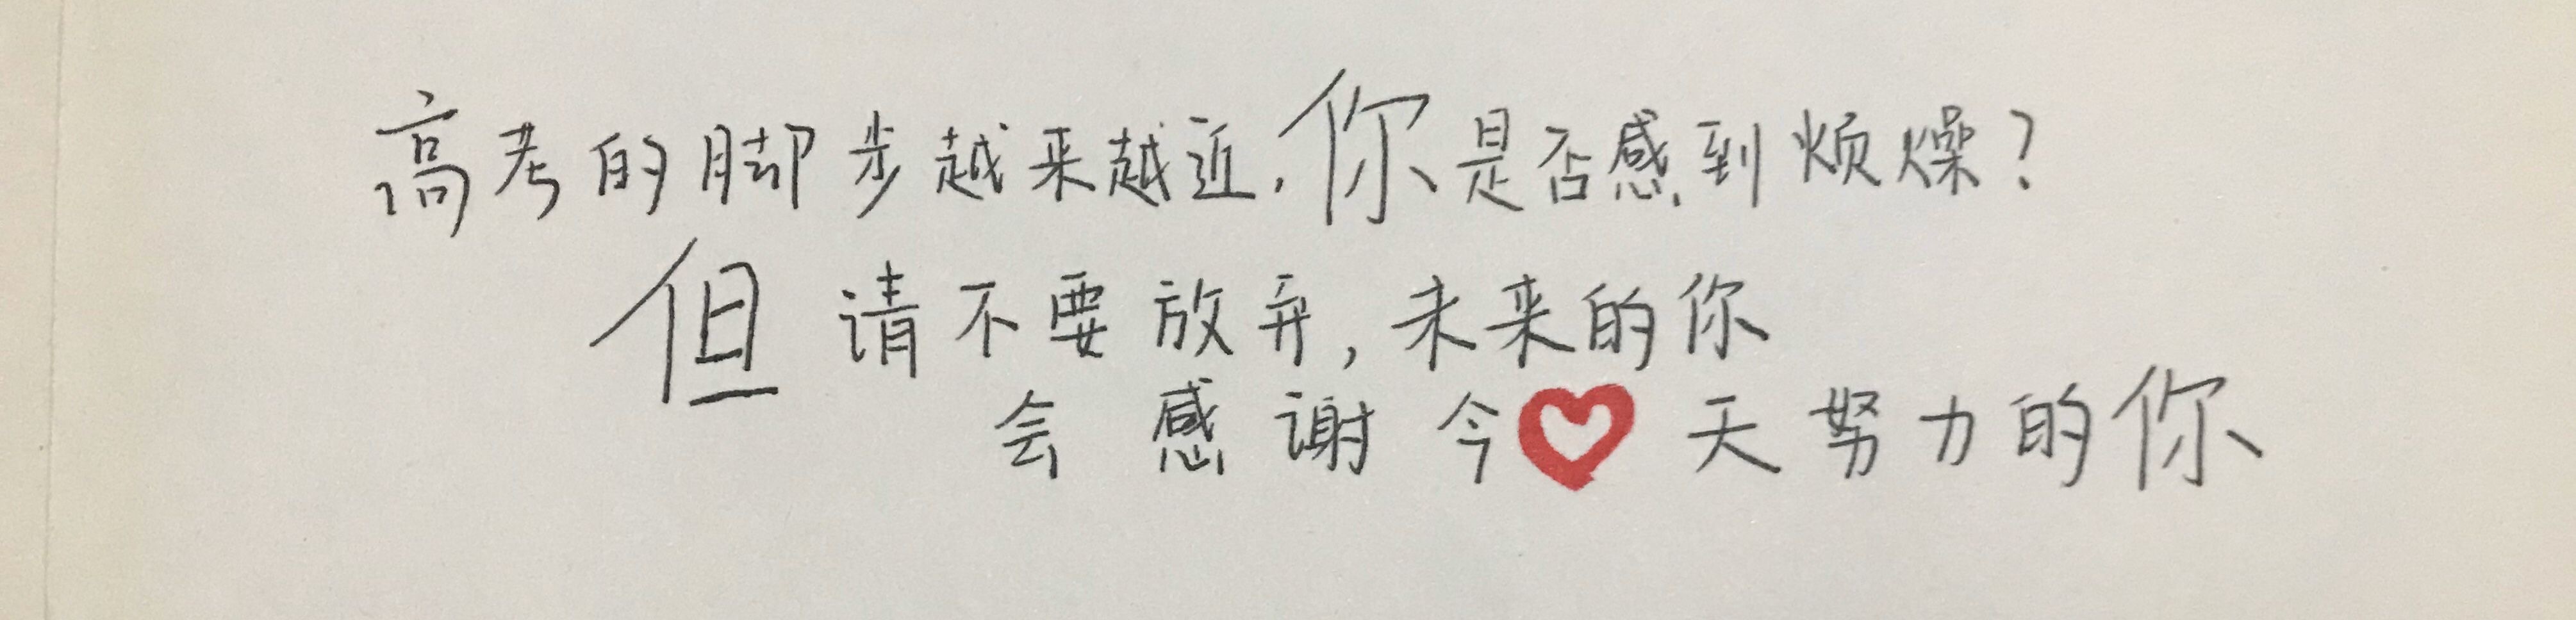 高考的脚步越来越近,你是否感到烦燥?
但请不要放弃,未来的你
会感谢今天努力的你